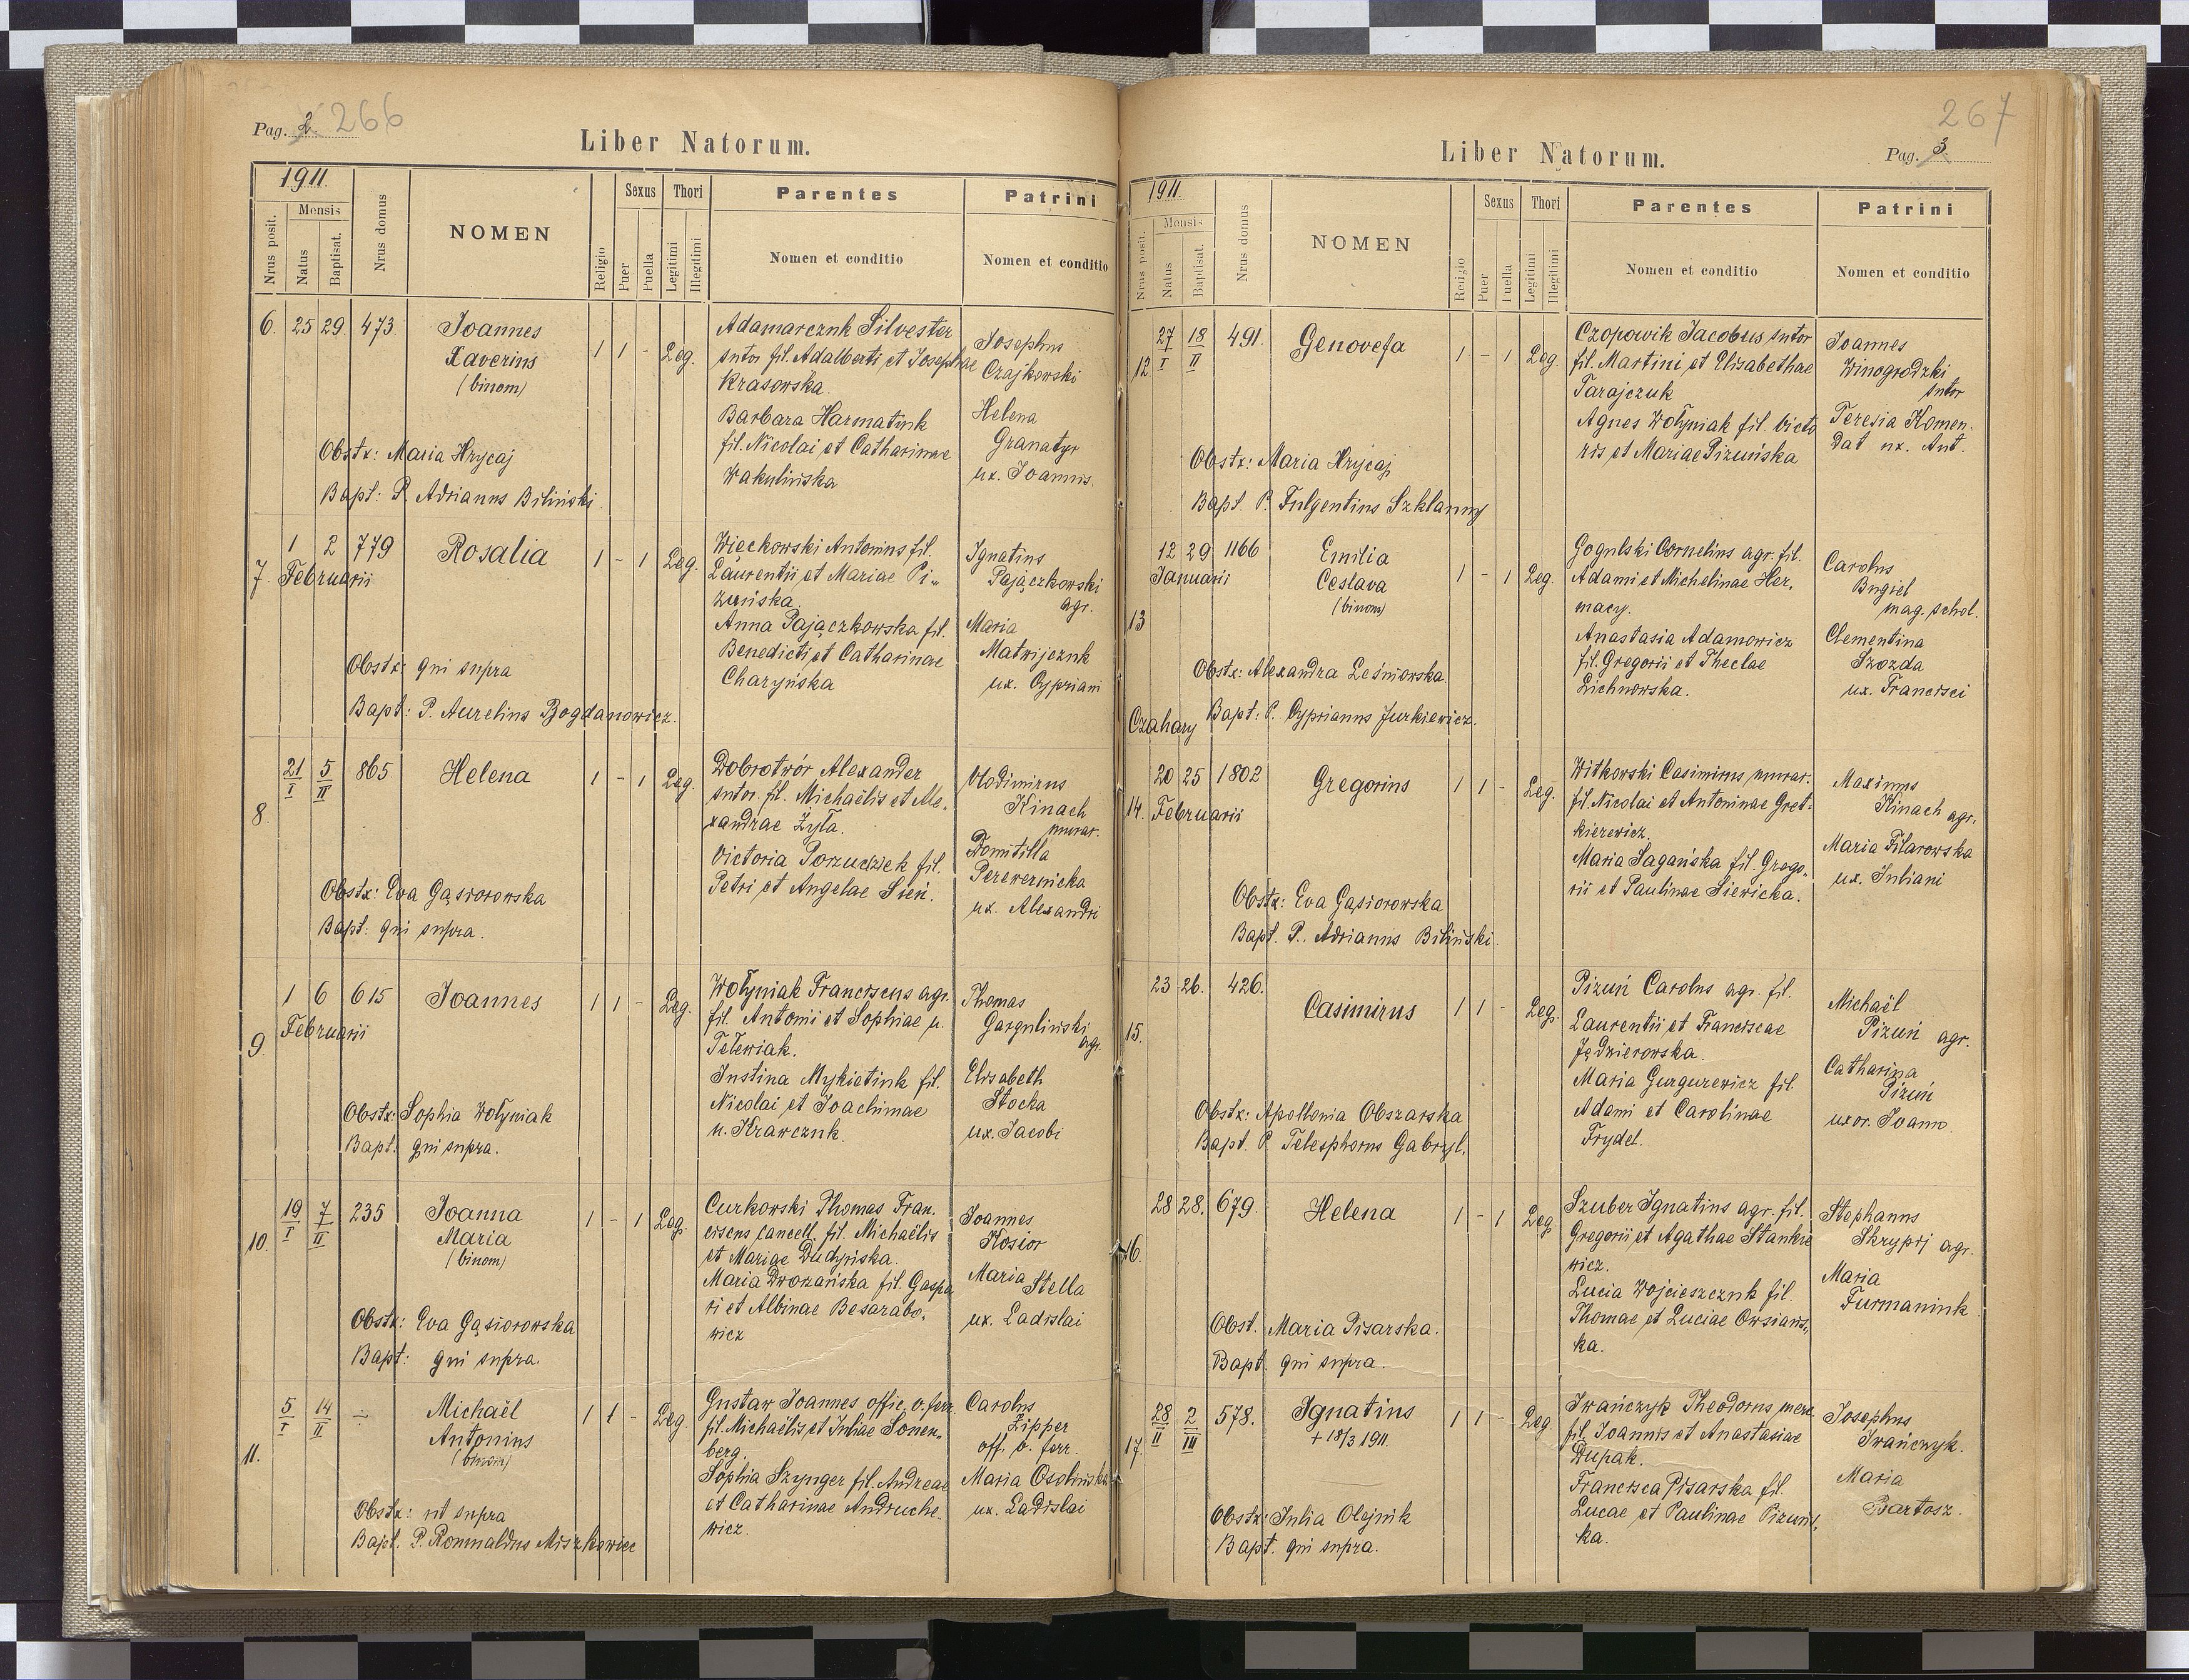 Pag. 2. 266
Liber Natorum.
1911.
Nrus posit.
Mensis
Natus
Baptisat.
Nrus domus
NOMEN
Religio
Sexus
Puer
Puella
Thori
Legitimi
Illegitimi
Parentes
Nomen et conditio
Patrini
Nomen et conditio
6. 25 29. 473 Joannes
Xaverius
(binom)
1 1 - Leg.
Adamarczuk Silvester
sutor fil. Adalberti et Josephae
Krasowska.
Barbara Harmatiuk
fil. Nicolai et Catharinae
Wakulińska
Josephus
Czajkowski
Helena
Granatyr
ux. Joannis.
Obstx: Maria Hrycaj
Bapt: P. Adrianus Biliński
7. 1 2 779 Rosalia 1 - 1 Leg.
Februarii
Więckowski Antonius fil.
Laurentii et Mariae Pi-
zuńska.
Anna Pajączkowska fil.
Benedicti et Catharinae
Charyńska
Ignatius
Pajączkowski
agr.
Maria
Matwijczuk
ux. Cypriani
Obstx: qui supra
Bapt: P. Aurelius Bogdanowicz.
8. 21/I 5/II 865 Helena 1 - 1 Leg.
Dobrotwór Alexander
sutor. fil. Michaëlis et Ale-
xandrae Żyła.
Victoria Poruczek fil.
Petri et Angelae Sień.
Vlodimirus
Kinach
murar.
Domitilla
Perewernicka
ux. Alexandri
Obstx: Eva Gąsiorowska
Bapt: qui supra.
9. 1 6 615 Joannes 1 1 - Leg.
Februarii
Wołyniak Franciscus agr.
fil. Antonii et Sophiae n.
Telewiak.
Justina Mykietiuk fil.
Nicolai et Joachimae
n. Krawczuk.
Thomas
Gargulinski
agr.
Elisabeth
Stocka
ux. Jacobi
Obstx: Sophia Wołyniak
Bapt: qui supra.
10. 19/I 7/II 235 Joanna
Maria
(binom)
1 - 1 Leg.
Curkowski Thomas Fran-
ciscus cancell. fil. Michaëlis
et Mariae Dudyńska.
Maria Drozańska fil. Gaspa
ri et Albinae Besarabo-
wicz
Joannes
Kosior
Maria Stella
ux. Ladislai
Obstx: Eva Gąsiorowska
Bapt: qui supra.
11. 5/I 14/II - Michaël
Antonius
(binom)
1 1 - Leg.
Gustaw Joannes offic. v. ferr.
fil. Michaëlis et Juliae Sonen-
berg.
Sophia Szynger fil. Andreae
et Catharinae Andruche-
wicz.
Carolus
Zipper
off. v. ferr.
Maria Osolińska
ux. Ladislai
Obstx: ut supra
Bapt. P. Romualdus Miszkowiec
267
Liber Natorum.
Pag. 3.
1911.
Nrus posit.
Mensis
Natus
Baptisat.
Nrus domus
NOMEN
Religio
Sexus
Puer
Puella
Thori
Legitimi
Illegitimi
Parentes
Nomen et conditio
Patrini
Nomen et conditio
12. 27/I 18/II 491. Genovefa 1 - 1 Leg.
Czopowik Jacobus sutor
fil. Martini et Elisabethae
Tarajczuk
Agnes Wołyniak fil. Victo
ris et Mariae Pizuńska
Joannes
Winogrodzki
sutor
Teresia Komen-
dat ux. Ant.
Obstx: Maria Hrycaj
Bapt. P. Fulgentius Szklanny
13 12 29 1166 Emilia
Januarii
Ceslava
(binom)
1 - 1 Leg.
Gogulski Cornelius agr. fil.
Adami et Michelinae Her-
macy.
Anastasia Adamowicz
fil. Gregorii et Theclae
Lichnowska.
Carolus
Bugiel
mag. schol.
Clementina
Szozda
ux. Francisci
Obstx: Alexandra Leśniowska.
Czahary Bapt: P. Cyprianus Jurkiewicz.
14. 20 25 1802 Gregorius 1 1 - Leg.
Februarii
Witkowski Casimirus murar.
fil. Nicolai et Antoninae Gret-
kierewicz.
Maria Sagańska fil. Grego-
rii et Paulinae Siewicka.
Maximus
Kinach agr.
Maria Filarowska
ux. Juliani
Obstx: Eva Gąsiorowska
Bapt. P. Adrianus Biliński.
15. 23 26. 426. Casimirus 1 1 - Leg.
Pizuń Carolus agr. fil.
Laurentii et Franciscae
Jędzierowska.
Maria Gurgurewicz fil.
Adami et Carolinae
Frydel.
Michaël
Pizuń agr.
Catharina
Pizuń
uxor. Joann.
Obstx: Apollonia Obszarska
Bapt. P. Telesphorus Gabryl.
16. 28 28. 679. Helena 1 - 1 Leg.
Szuber Ignatius agr. fil.
Gregorii et Agathae Stankie
wicz.
Lucia Wojcieszczuk fil.
Thomae et Luciae Owsians-
ka.
Stephanus
Skrypij agr.
Maria
Furmaniuk
Obst. Maria Pisarska.
Bapt. qui supra.
17. 28/II 2/III 578. Ignatius 1 1 - Leg.
+ 18/3 1911.
Iwańczyk Theodorus merc.
fil. Joannis et Anastasiae
Dupak.
Francisca Pisarska fil.
Lucae et Paulinae Pizuńs-
ka.
Josephus
Iwańczyk.
Maria
Bartosz.
Obstx: Julia Olejnik
Bapt. qui supra.